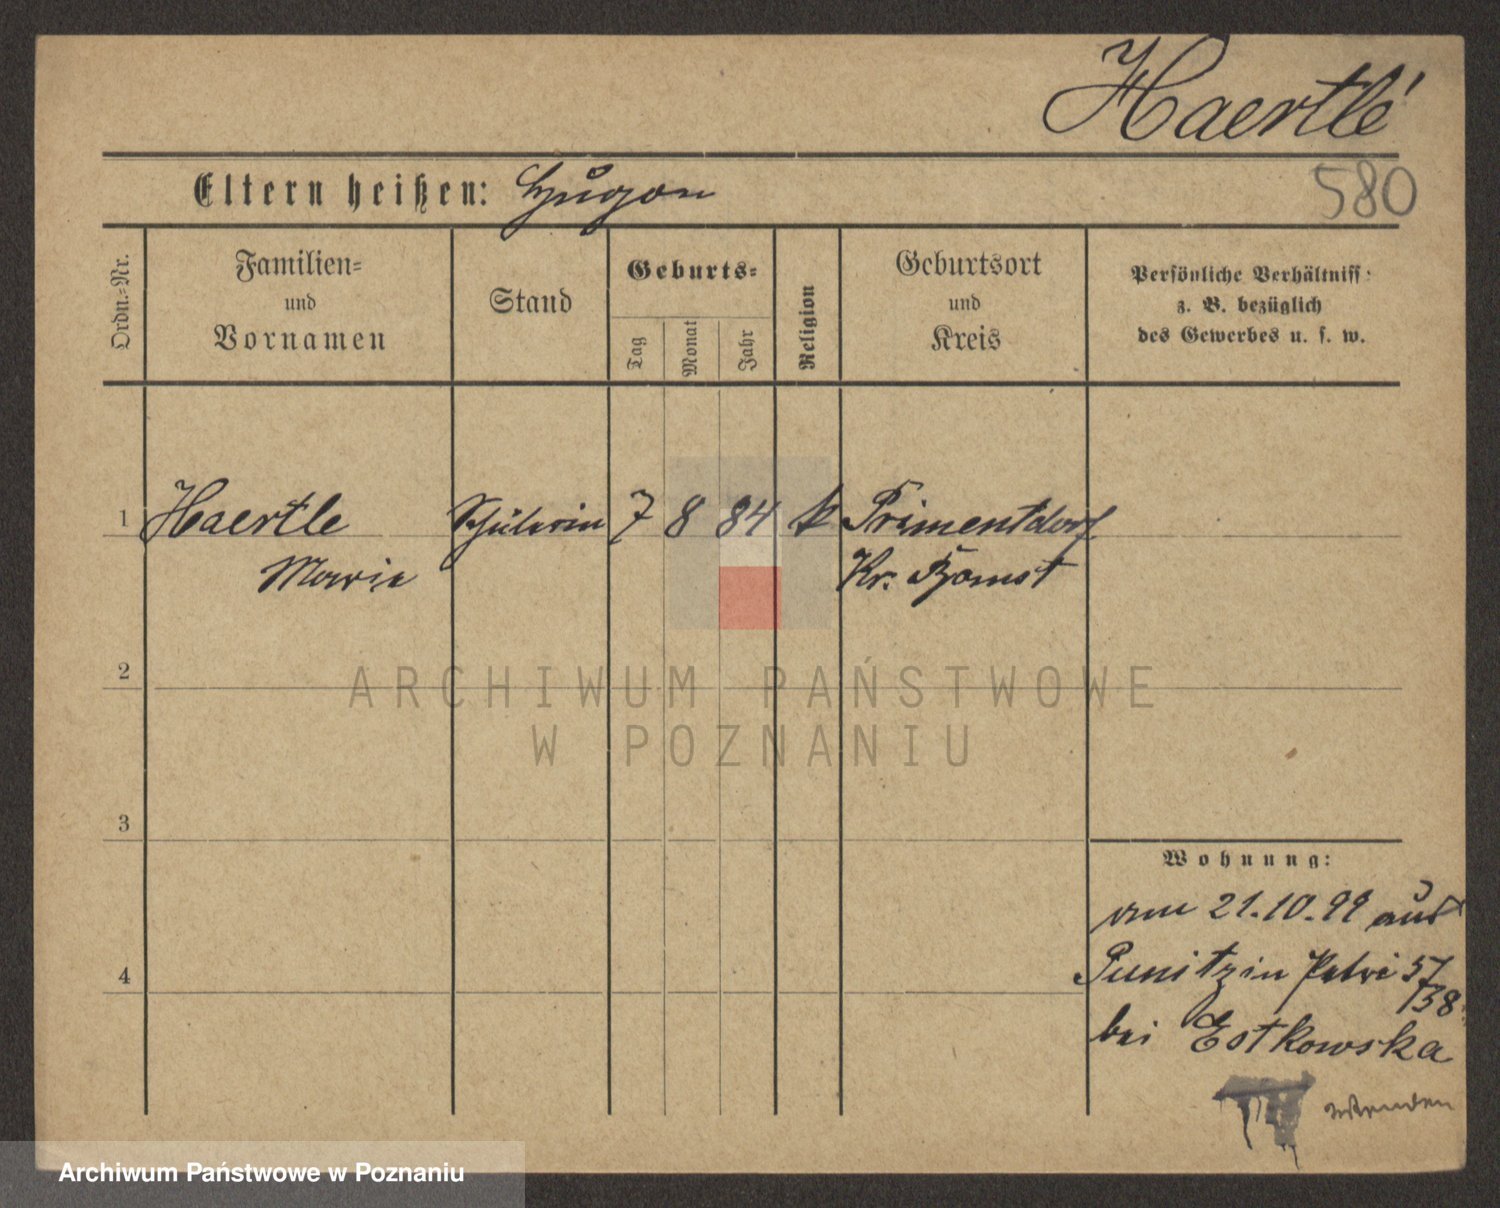 Haertlé
Eltern heißen: Hugon
580
Ordn.-Nr.
Familien-
und
Vornamen
Stand
Geburts-
Tag
Monat
Jahr
Religion
Geburtsort
und
Kreis
Persönliche Verhältniss:
z. B. bezüglich
des Gewerbes u. s. w.
1 Haertle Schülerin 7 8 84 k Primentdorf
Marie Kr. Bomst
2
ARCHIWUM PAŃSTWOWE
W POZNANIU
3
Wohnung:
am 21.10.99 aus
Punitz in Petri 57
/58
4
bei Estkowska
wenden
Archiwum Państwowe w Poznaniu